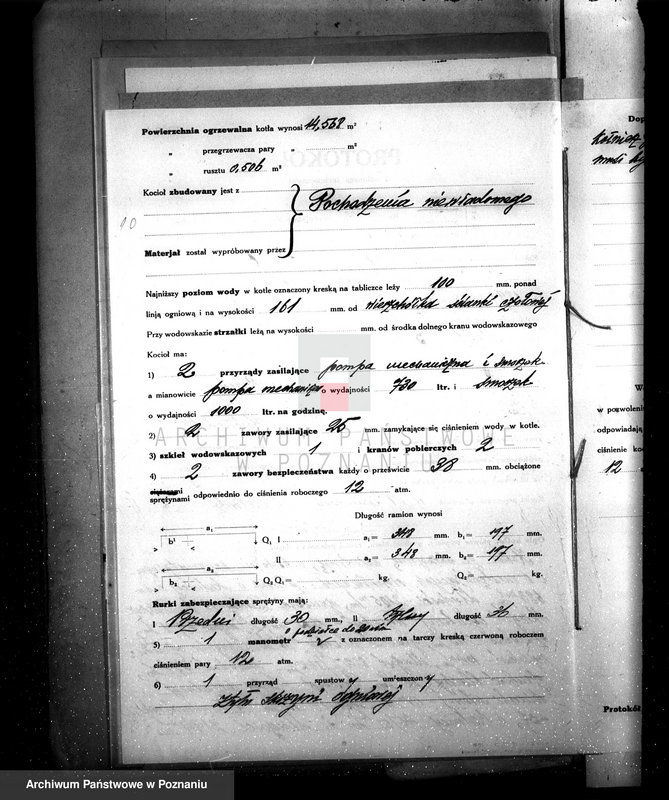 Powierzchnia ogrzewalna kotła wynosi 14,568 m²
„ przegrzewacza pary „ m²
„ rusztu 0,506 m²
Kocioł zbudowany jest z
Pochodzenia niewiadomego
10
Materjał został wypróbowany przez
Najniższy poziom wody w kotle oznaczony kreską na tabliczce leży 100 mm. ponad
linją ogniową i na wysokości 161 mm. od wierzchołka ścianki czołowej
Przy wodowskazie strzałki leżą na wysokości mm. od środka dolnego kranu wodowskazowego
Kocioł ma:
1) 2 przyrządy zasilające pompa mechaniczna i smoczek
a mianowicie pompa mechaniczna o wydajności 700 ltr. i smoczek
o wydajności 1000 ltr. na godzinę.
2) 2 zawory zasilające 25 mm. zamykające się ciśnieniem wody w kotle.
3) szkieł wodowskazowych 1 i kranów pobierczych 2
4) 2 zawory bezpieczeństwa każdy o prześwicie 38 mm. obciążone
sprężynami odpowiednio do ciśnienia roboczego 12 atm.
Długość ramion wynosi
a₁ b¹ Q₁ I a₁= 348 mm. b₁= 197 mm.
II a₂= 348 mm. b₂= 197 mm.
a₂ b₂ Q₂ Q₁= kg. Q₂= kg.
Rurki zabezpieczające sprężyny mają:
I Przedni długość 30 mm., II Tylny długość 36 mm.
o podziałce do
5) 1 manometr z oznaczonem na tarczy kreską czerwoną roboczem
ciśnieniem pary 12 atm.
6) 1 przyrząd spustowy umieszczony
z tyłu skrzyni ogniowej
ARCHIWUM PAŃSTWOWE
W POZNANIU
Dop
W
w pozwoleni
odpowiadają
ciśnienie ko
12
Protokół
Archiwum Państwowe w Poznaniu